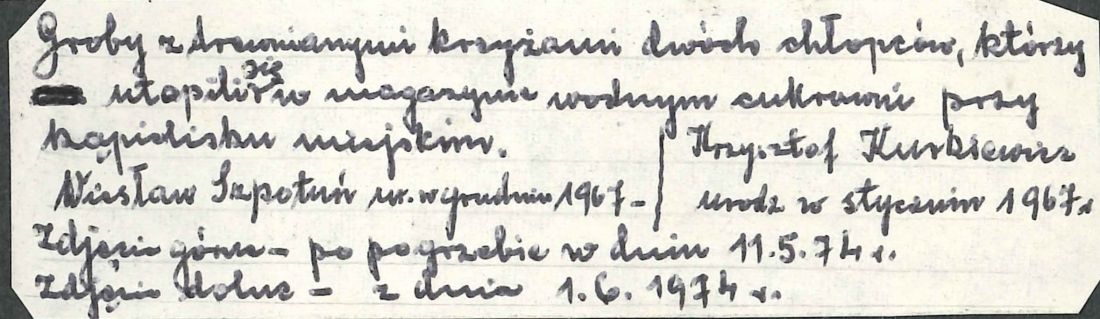 Groby z drewnianymi krzyżami dwóch chłopców, którzy
utopili się w magazynie wodnym cukrowni przy
kąpielisku miejskim.
Wiesław Szpotuń ur. w grudniu 1967 - | Krzysztof Kurkiewicz
urodz w styczniu 1967 r
Zdjęcie górne - po pogrzebie w dniu 11.5.74 r.
Zdjęcie dolne - z dnia 1.6.1974 r.